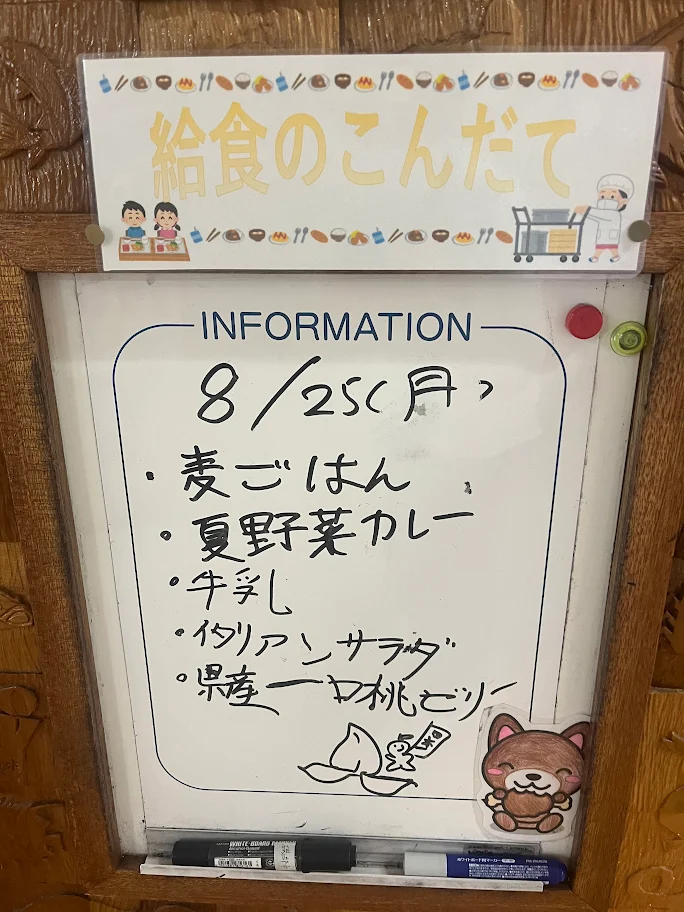 給食のこんだて
INFORMATION
8/25(月)
・麦ごはん
・夏野菜カレー
・牛乳
・イタリアンサラダ
・県産一口桃ゼリー
WHITE-BOARD MARKER
ホワイトボード用マーカー